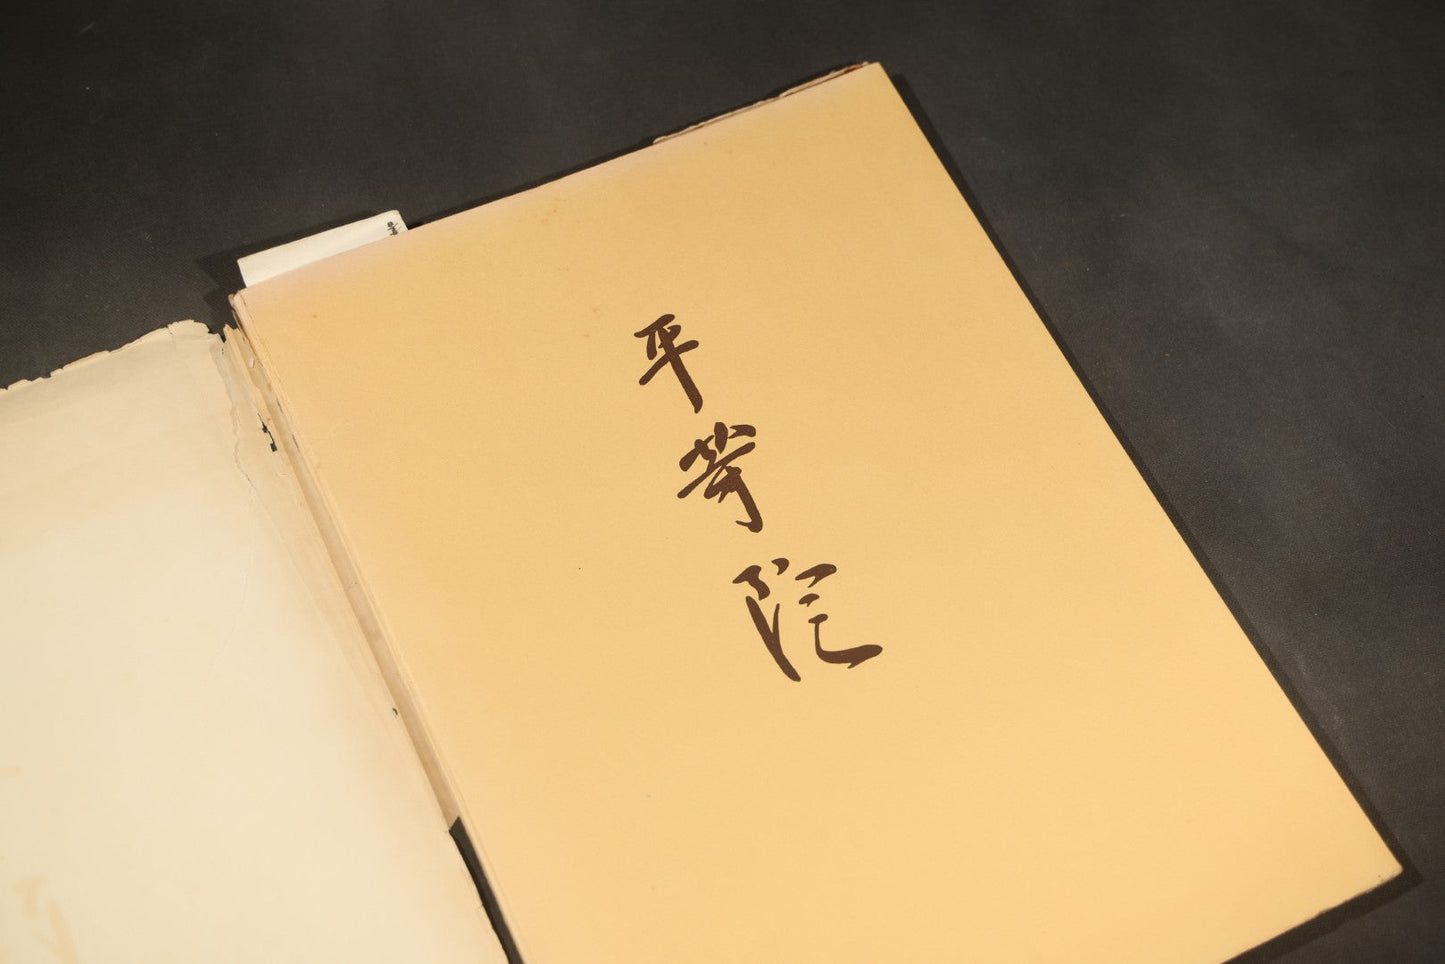 平等院